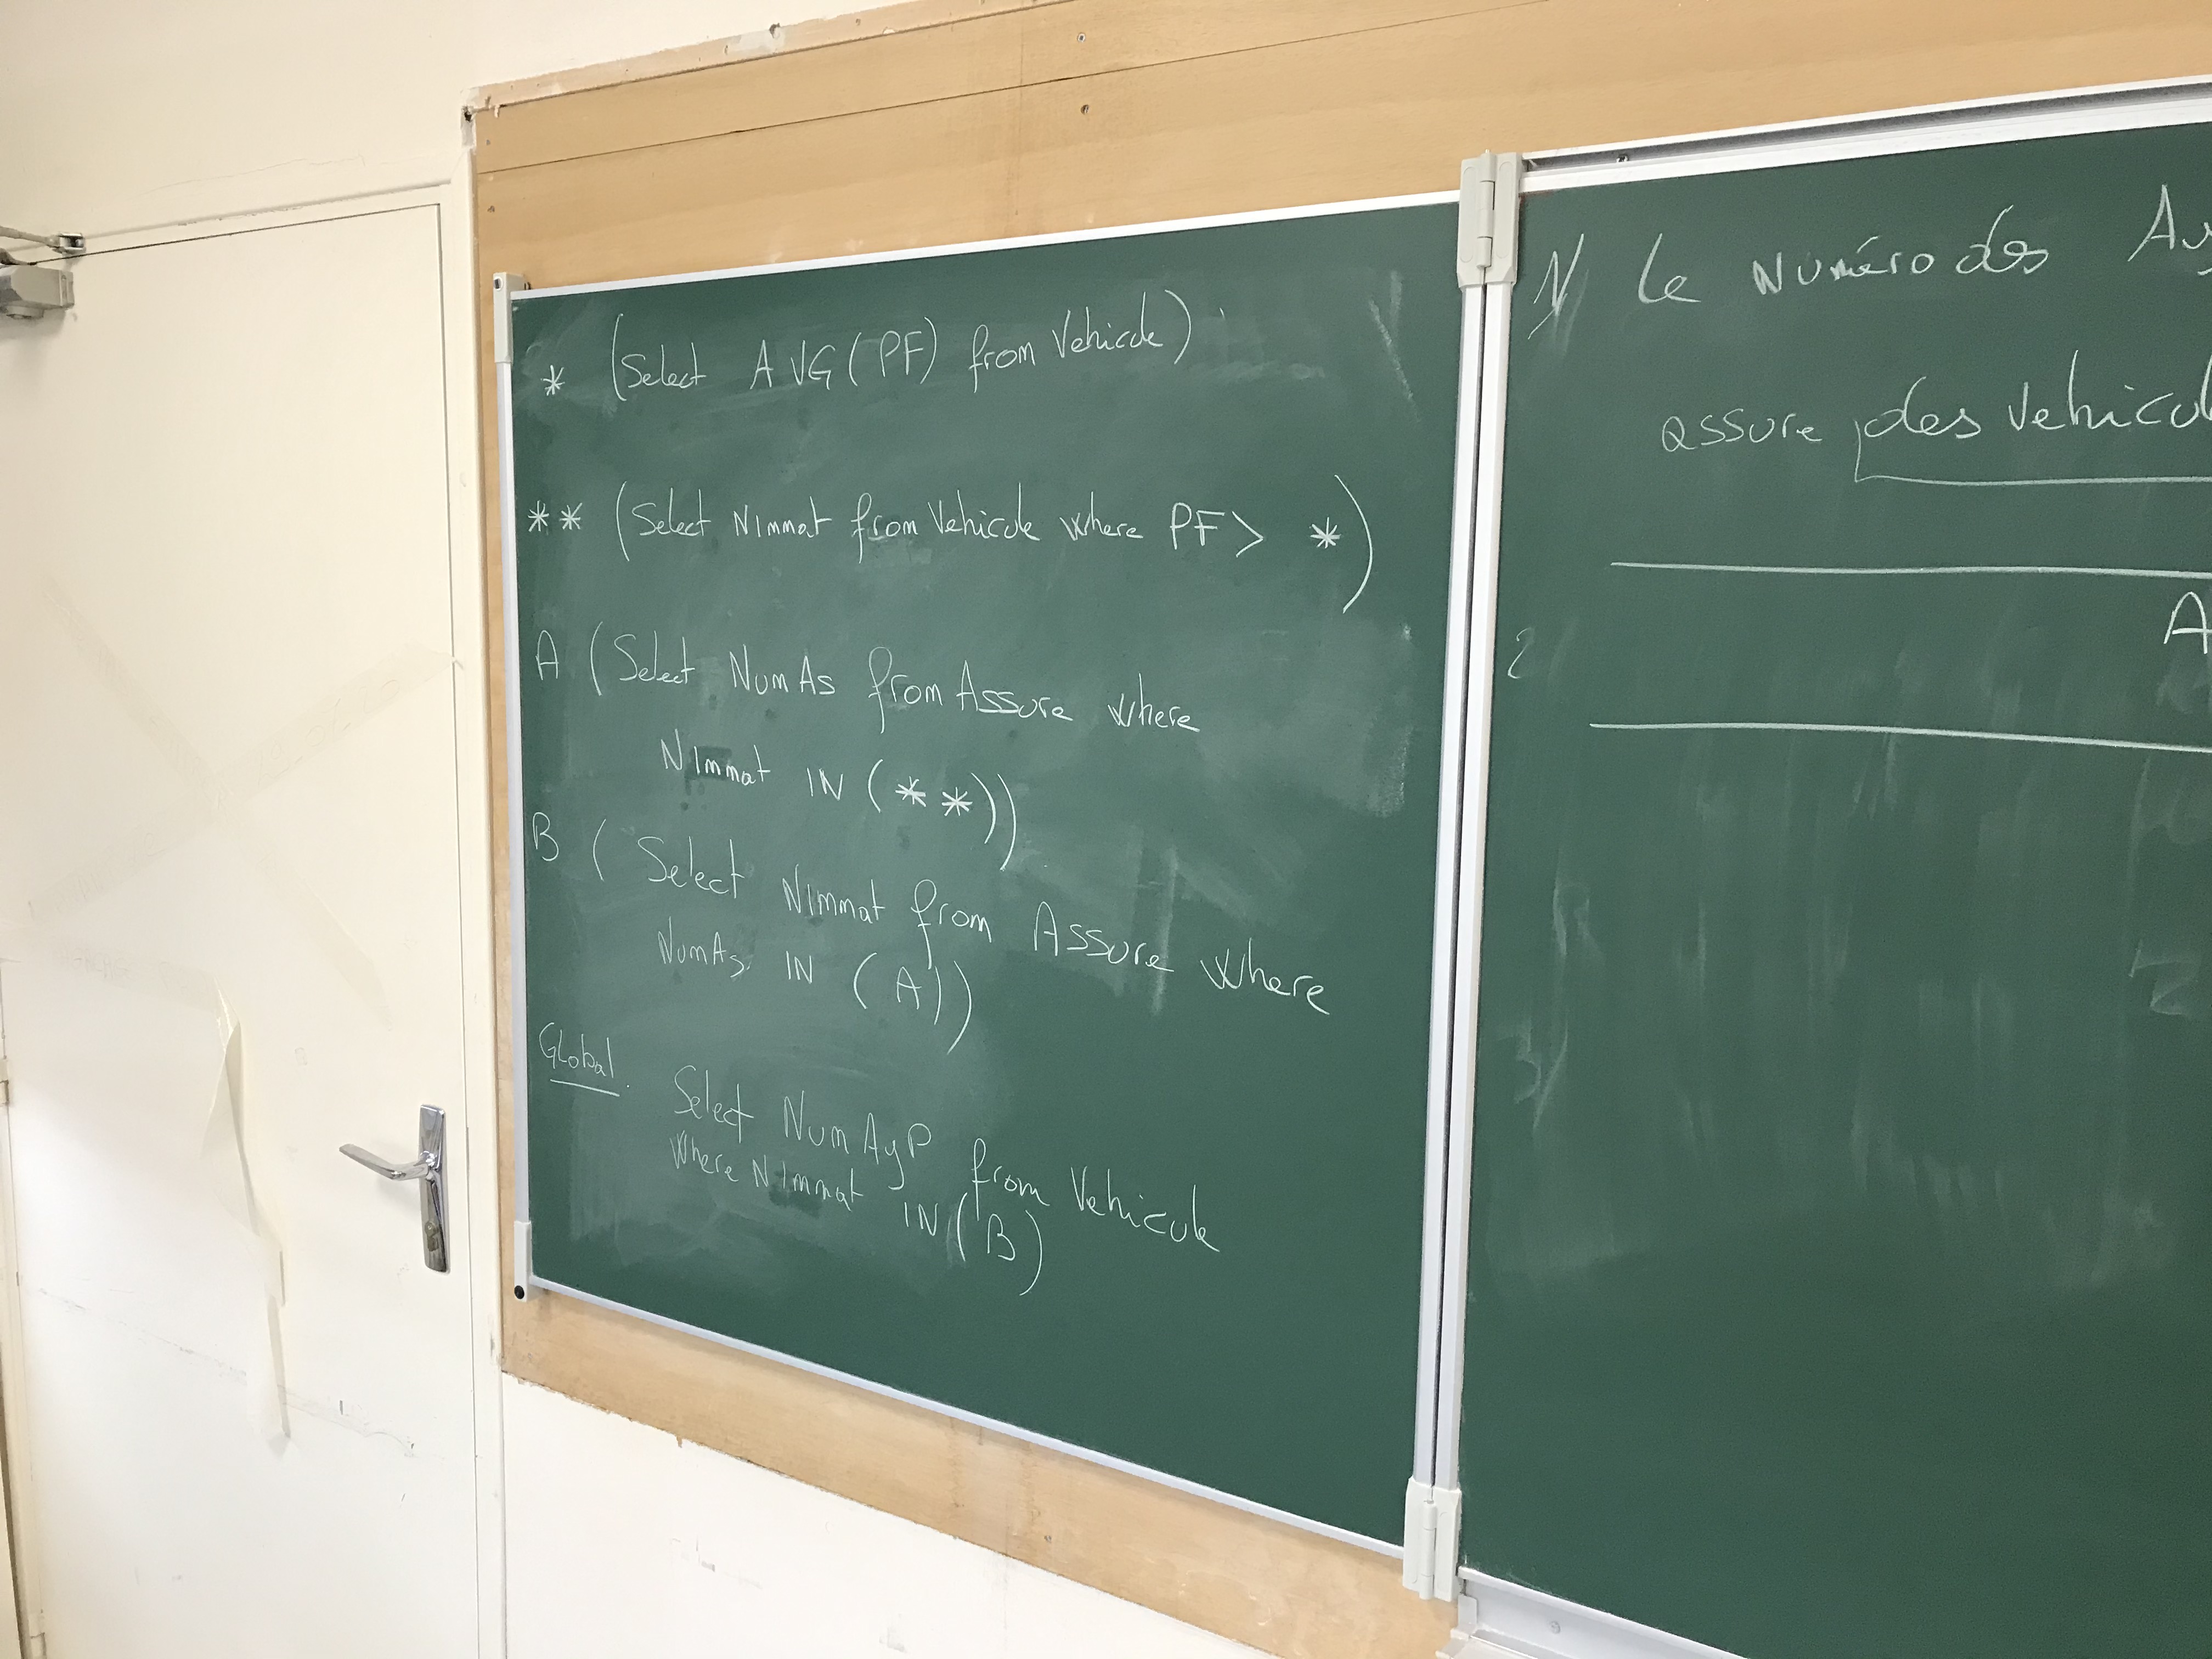 * (Select AVG(PF) from Vehicule)
** (Select NImmat from Vehicule where PF > *)
A (Select NumAs from Assure where
NImmat IN (**))
B ( Select NImmat from Assure where
NumAs IN (A))
Global.
Select NumAyP from Vehicule
where NImmat IN (B)
Le Numéro des
assure des vehicul
A
2